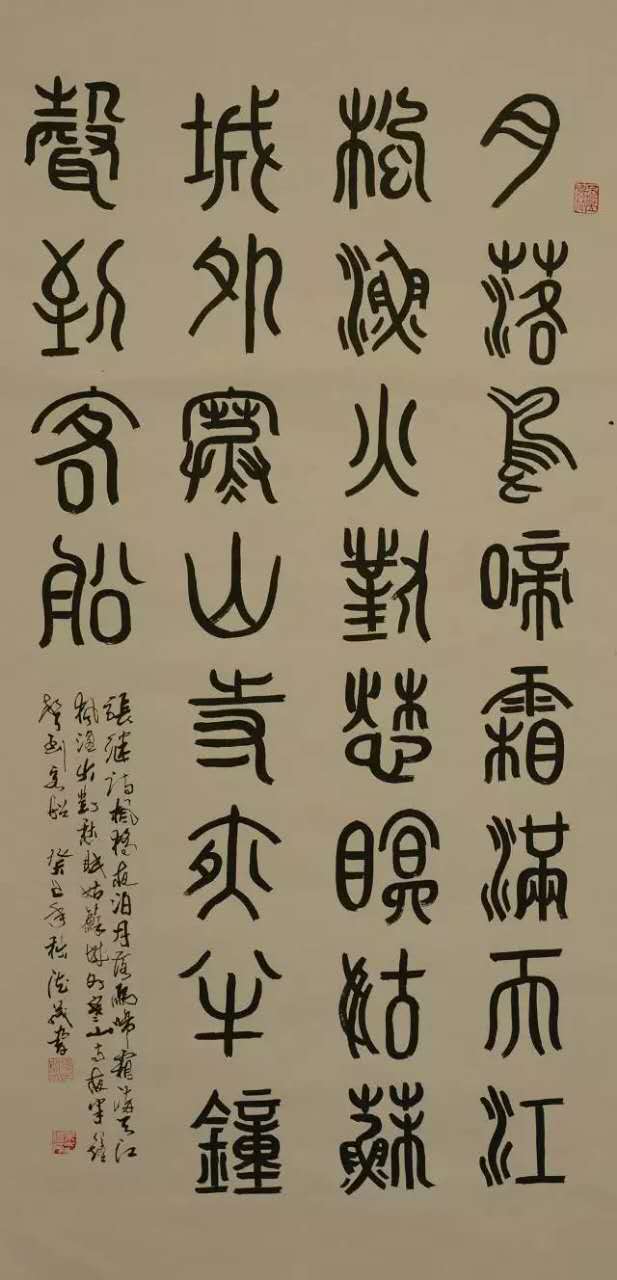 月落烏啼霜滿天江
楓漁火對愁瞑姑蘇
城外寒山寺夜半鐘
聲到客船
張繼詩楓橋夜泊月落烏啼霜滿天江
楓漁火對愁眠姑蘇城外寒山寺夜半鐘
聲到客船 書